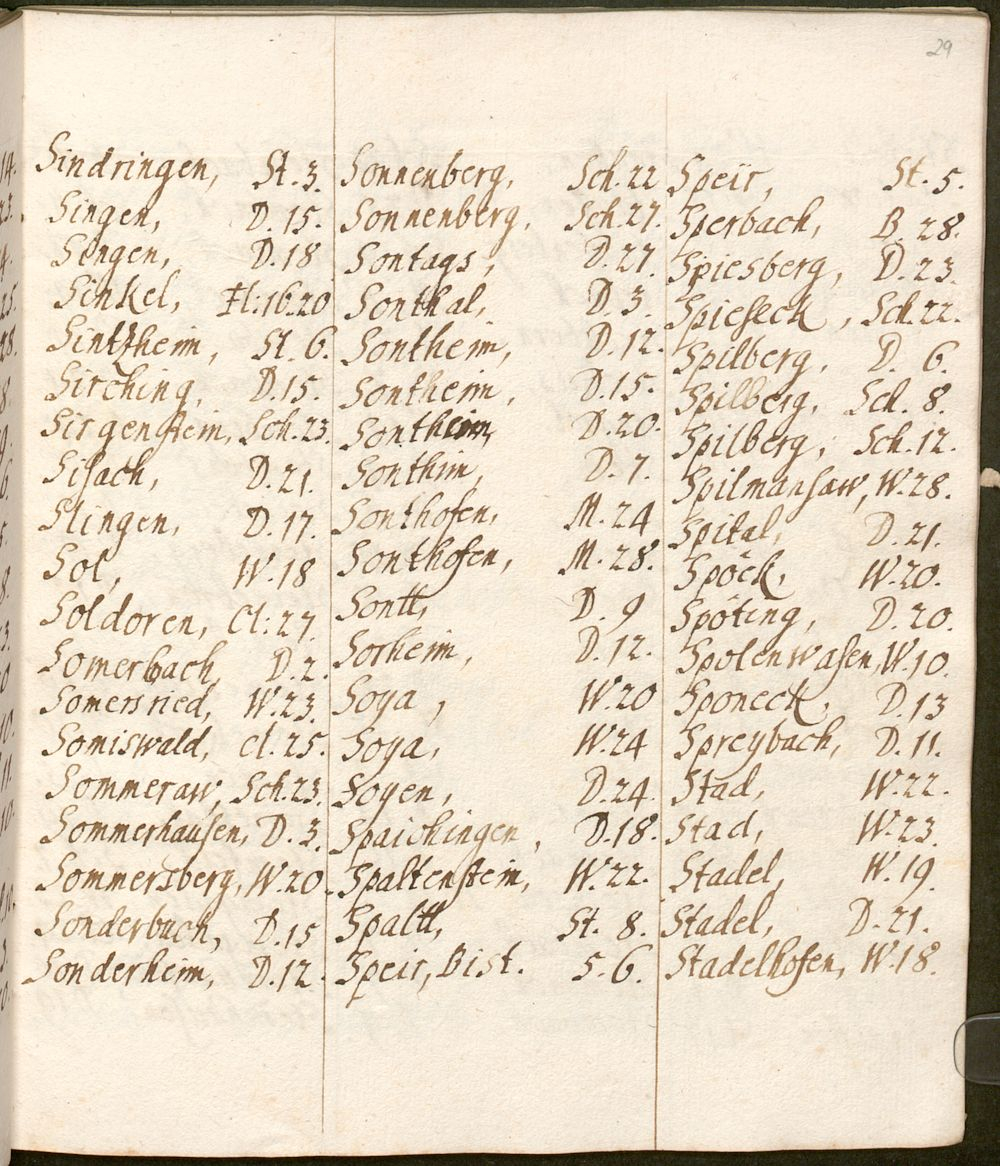 29
Sindringen, St. 3.
Singen, D. 15.
Singen, D. 18
Sinkel, Fl: 16. 20
Sintzheim, St. 6.
Sirching, D. 15.
Sirgenstein, Sch. 23.
Sisach, D. 21.
Slingen, D. 17.
Sol, W. 18
Soldoren, Cl: 27.
Somerbach, D. 2.
Somersried, W. 23.
Somiswald, Cl. 25.
Sommeraw, Sch. 23.
Sommerhausen, D. 3.
Sommersberg, W. 20.
Sonderbuch, D. 15
Sonderheim, D. 12.
Sonnenberg, Sch. 22
Sonnenberg, Sch. 27.
Sontags, D. 27.
Sonthal, D. 3.
Sontheim, D. 12.
Sontheim, D. 15.
Sontheim, D. 20.
Sonthim, D. 7.
Sonthofen, M. 24
Sonthofen, M. 28.
Sontt, D. 9
Sorheim, D. 12.
Soya, W. 20
Soya, W. 24
Soyen, D. 24.
Spaichingen, D. 18.
Spaltenstein, W. 22.
Spaltt, St. 8.
Speir, Bist. 5. 6.
Speir, St. 5.
Sperbach, B. 28.
Spiesberg, D. 23.
Spieseck, Sch. 22.
Spilberg, D. 6.
Spilberg, Sch. 8.
Spilberg, Sch. 12.
Spilmansaw, W. 28.
Spital, D. 21.
Spöck, W. 20.
Spöting, D. 20.
Spolenwasen, W. 10.
Sponeck, D. 13
Spreybach, D. 11.
Stad, W. 22.
Stad, W. 23.
Stadel, W. 19.
Stadel, D. 21.
Stadelhofen, W. 18.